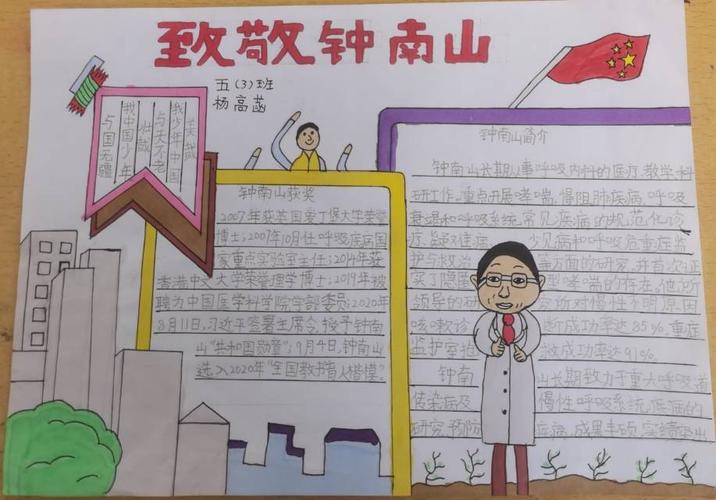 致敬钟南山
五(3)班
杨高菡
美哉
我少年中国
与天不老
壮哉
我中国少年
与国无疆
钟南山获奖
2007年获英国爱丁堡大学荣誉
博士;2007年10月任呼吸疾病国
家重点实验室主任;2014年获
香港中文大学荣誉理学博士;2019年被
聘为中国医学科学院学部委员;2020年
8月11日,习近平签署主席令,授予钟南
山"共和国勋章";9月4日,钟南山
选入2020年"全国教书育人楷模"。
钟南山简介
钟南山长期从事呼吸内科的医疗、教学、科
研工作,重点开展哮喘,慢阻肺疾病,呼吸
衰竭和呼吸系统常见疾病的规范化诊
疗、疑难病、少见病和呼吸危重症监
护与救治等方面的研究,并首次证
实了隐匿型哮喘的存在,他所
领导的研究所对慢性不明原因
咳嗽诊断成功率达85%,重症
监护室抢救成功率达91%。
钟南山长期致力于重大呼吸道
传染病及慢性呼吸系统疾病的
研究、预防 疾病,成果丰硕,实绩突出